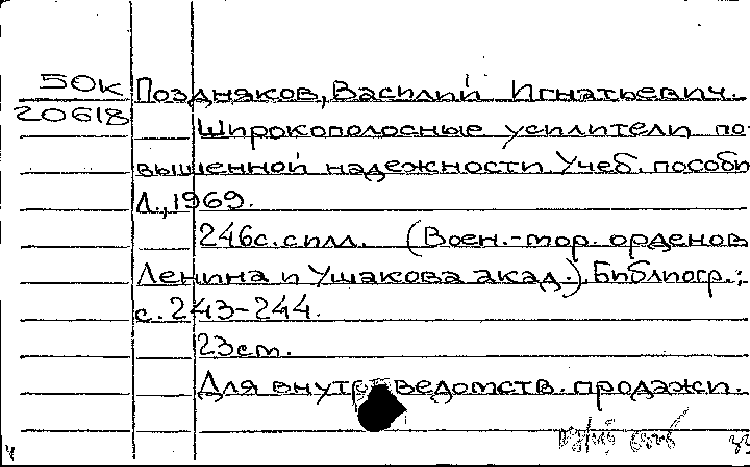 50к Поздняков, Василий Игнатьевич.
20618 Широкополосные усилители по-
вышенной надежности. Учеб. пособи
Л., 1969.
246с. с илл. (Воен.-мор. орденов
Ленина и Ушакова акад.). Библиогр.:
с. 243-244.
23см.
Для внутриведомств. продажи.